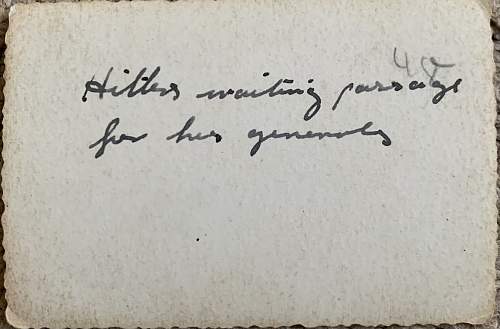 Hitlers waiting passage
for his generals